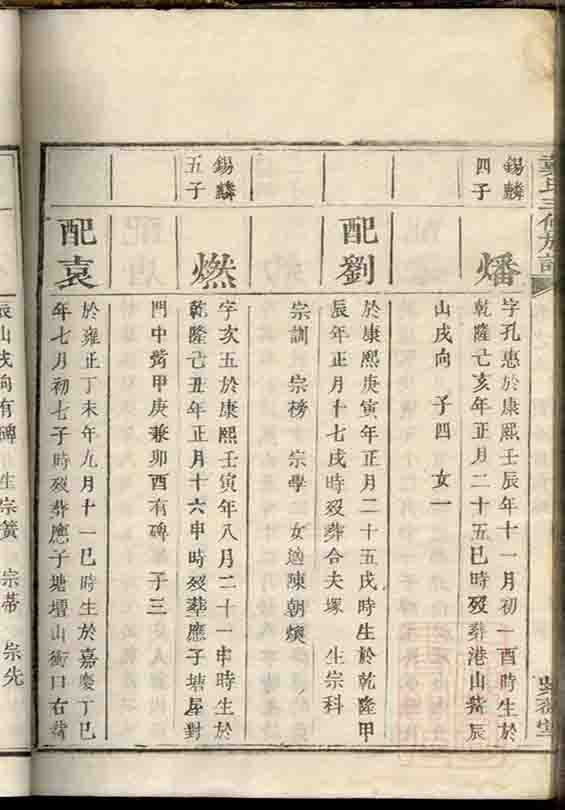 錫麟
四子
燔
字孔惠於康熙壬辰年十一月初一酉時生於
乾隆己亥年正月二十五巳時歿葬港山
辰
山戌向 子四 女一
配劉
於康熙庚寅年正月二十五戌時生於乾隆甲
辰年正月十七戌時歿葬合夫塚 生宗科
宗訓 宗榜 宗學 女適陳朝煥
錫麟
五子
燃
字次五於康熙壬寅年八月二十一申時生於
乾隆己丑年正月十六申時歿葬應子塘屋對
門中嘴甲庚兼卯酉有碑 子三
配袁
於雍正丁未年九月十一巳時生於嘉慶丁巳
年七月初七子時歿葬應子塘壇山衝口右嘴
辰山戌向有碑 生宗簧 宗蒂 宗先